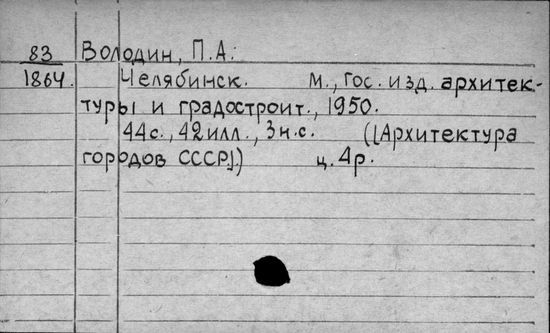 83 Володин, П.А.
1864. Челябинск. М., гос. изд. архитек-
туры и градостроит., 1950.
44с., 42 илл., 3 н.с. ([Архитектура
городов СССР].) ц. 4р.